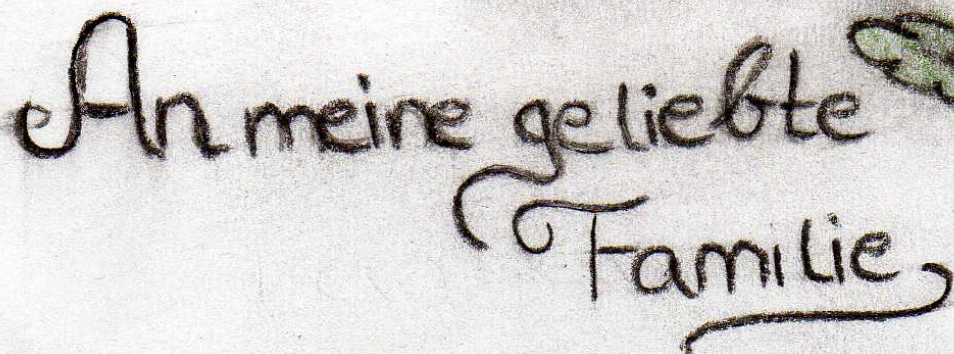 An meine geliebte
Familie